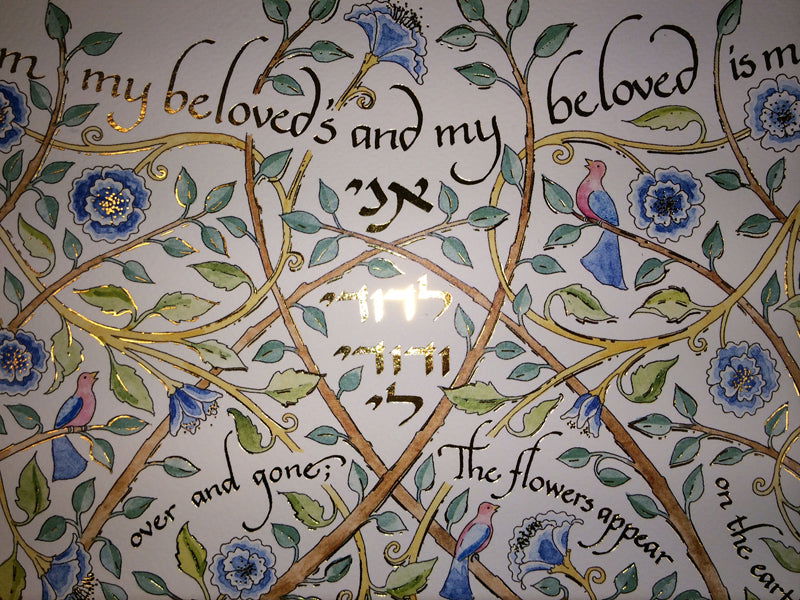 my beloved's and my beloved is m
אני
לדודי
ודודי
לי
over and gone;
The flowers appear
on the eart